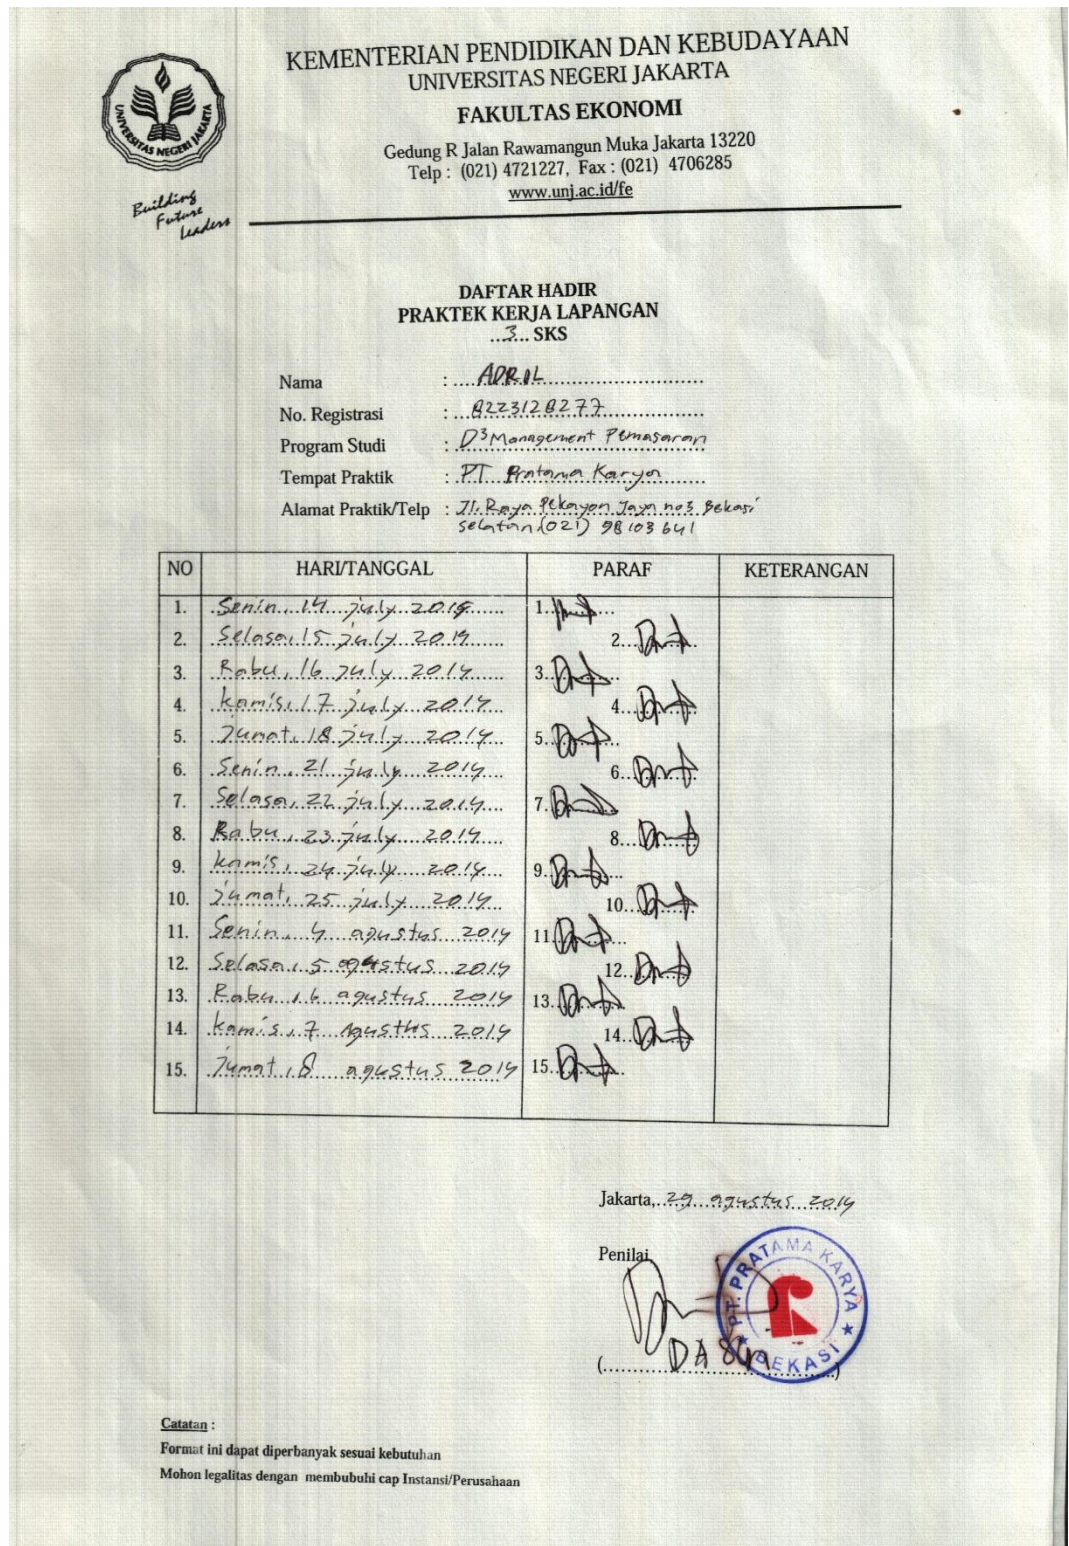 KEMENTERIAN PENDIDIKAN DAN KEBUDAYAAN
UNIVERSITAS NEGERI JAKARTA
FAKULTAS EKONOMI
Gedung R Jalan Rawamangun Muka Jakarta 13220
Telp : (021) 4721227, Fax : (021) 4706285
www.unj.ac.id/fe
UNIVERSITAS NEGERI JAKARTA
Building
Future
Leaders
DAFTAR HADIR
PRAKTEK KERJA LAPANGAN
...3... SKS
Nama : ADRIL
No. Registrasi : 8223128277
Program Studi : D3 Management Pemasaran
Tempat Praktik : PT Pratama Karya
Alamat Praktik/Telp : Jl. Raya Pekayon Jaya no3 Bekasi
selatan (021) 98103641
NO HARI/TANGGAL PARAF KETERANGAN
1. Senin, 14 july 2014 1.
2. Selasa, 15 july 2014 2.
3. Rabu, 16 july 2014 3.
4. kamis, 17 july 2014 4.
5. Jumat, 18 july 2014 5.
6. Senin, 21 july 2014 6.
7. Selasa, 22 july 2014 7.
8. Rabu, 23 july 2014 8.
9. kamis, 24 july 2014 9.
10. Jumat, 25 july 2014 10.
11. Senin, 4 agustus 2014 11.
12. Selasa, 5 agustus 2014 12.
13. Rabu, 6 agustus 2014 13.
14. kamis, 7 Agustus 2014 14.
15. Jumat, 8 agustus 2014 15.
Jakarta, 29 agustus 2014
Penilai
PT. PRATAMA KARYA
BEKASI
Catatan :
Format ini dapat diperbanyak sesuai kebutuhan
Mohon legalitas dengan membubuhi cap Instansi/Perusahaan